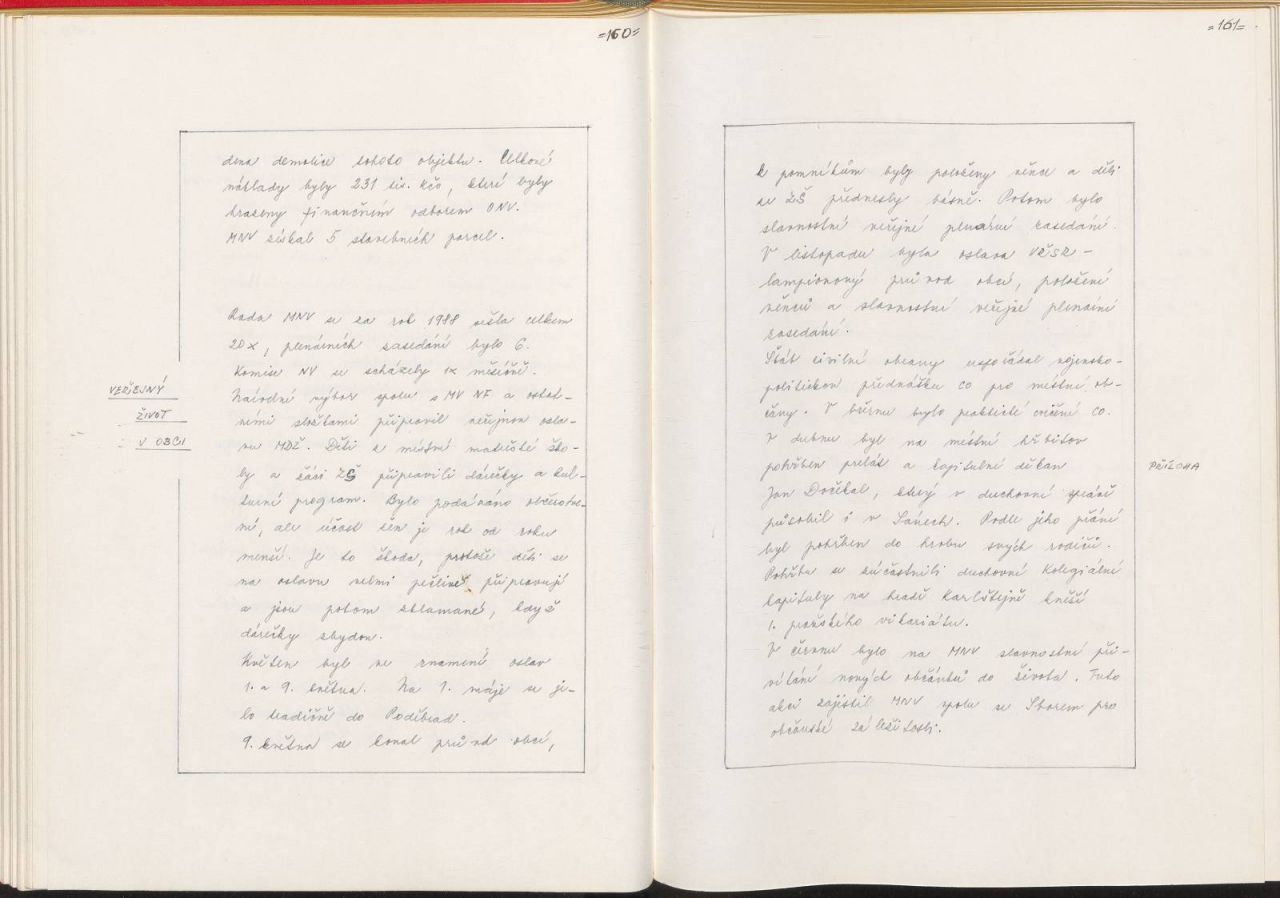 =160=
dena demolice tohoto objektu. Celkové
náklady byly 231 tis. Kčs, které byly
hrazeny finančním odborem ONV.
MNV získal 5 stavebních parcel.
Rada MNV se za rok 1988 sešla celkem
20x, plenárních zasedání bylo 6.
Komise NV se scházely 1x měsíčně.
VEŘEJNÝ
ŽIVOT
V OBCI
Národní výbor spolu s MV NF a ostat-
ními složkami připravil veřejnou osla-
vu MDŽ. Děti z místní mateřské ško-
ly a žáci ZŠ připravili dárečky a kul-
turní program. Bylo podáváno občerstve-
ní, ale účast žen je rok od roku
menší. Je to škoda, protože děti se
na oslavu velmi pečlivě připravují
a jsou potom zklamané, když
dárečky zbydou.
Květen byl ve znamení oslav
1. a 9. května. Na 1. máje se je-
lo tradičně do Poděbrad.
9. května se konal průvod obcí,
=161=
k pomníkům byly položeny věnce a děti
ze ZŠ přednesly básně. Potom bylo
slavnostní veřejné plenární zasedání.
V listopadu byla oslava VŘSR -
lampionový průvod obcí, položení
věnců a slavnostní veřejné plenární
zasedání.
Štáb civilní obrany uspořádal vojensko-
politickou přednášku CO pro místní ob-
čany. V březnu bylo praktické cvičení CO.
V dubnu byl na místní hřbitov
pohřben prelát a kapitulní děkan
PŘÍLOHA
Jan Dočekal, který v duchovní správě
působil i v Sánech. Podle jeho přání
byl pohřben do hrobu svých rodičů.
Pohřbu se zúčastnili duchovní Kolegiální
kapituly na hradě Karlštejně kněží
1. pražského vikariátu.
V červnu bylo na MNV slavnostní při-
vítání nových občánků do života. Tuto
akci zajistil MNV spolu se Sborem pro
občanské záležitosti.